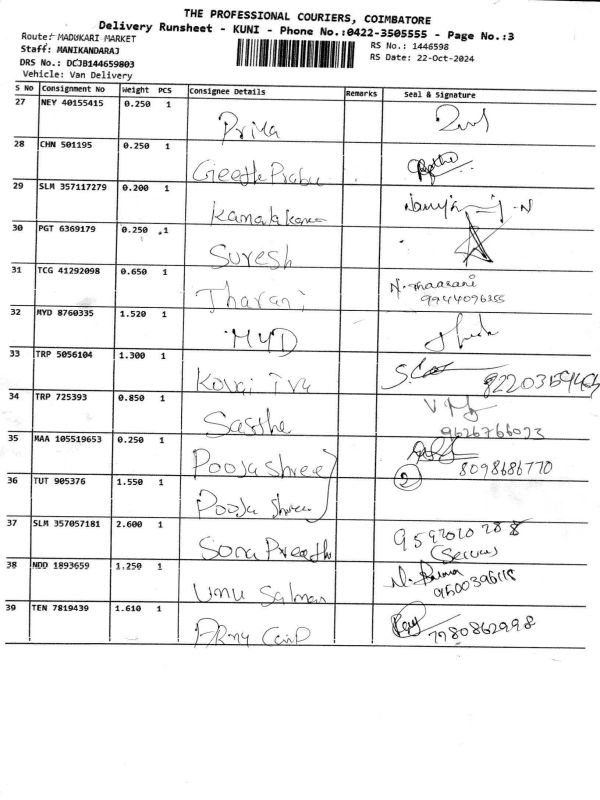 THE PROFESSIONAL COURIERS, COIMBATORE
Delivery Runsheet - KUNI - Phone No.:0422-3505555 - Page No.:3
Route: MADUKARI MARKET
RS No.: 1446598
Staff: MANIKANDARAJ
RS Date: 22-Oct-2024
DRS No.: DCJB144659803
Vehicle: Van Delivery
S No Consignment No Weight PCS Consignee Details Remarks Seal & Signature
27 NEY 40155415 0.250 1 Priya
28 CHN 501195 0.250 1 Geetha Prabu
29 SLM 357117279 0.200 1
30 PGT 6369179 0.250 1 Suresh
31 TCG 41292098 0.650 1 Tharani N. Thaarani
9944096355
32 MYD 8760335 1.520 1 MYD
33 TRP 5056104 1.300 1 Kovai TVS
34 TRP 725393 0.850 1 Sasthe
9626766023
35 MAA 105519653 0.250 1 Pooja Shree
2 8098686770
36 TUT 905376 1.550 1 Pooja Shree
37 SLM 357057181 2.600 1 9592020288
38 NDD 1893659 1.250 1 Salman
9500396118
39 TEN 7819439 1.610 1 ARmy Camp 7980862998